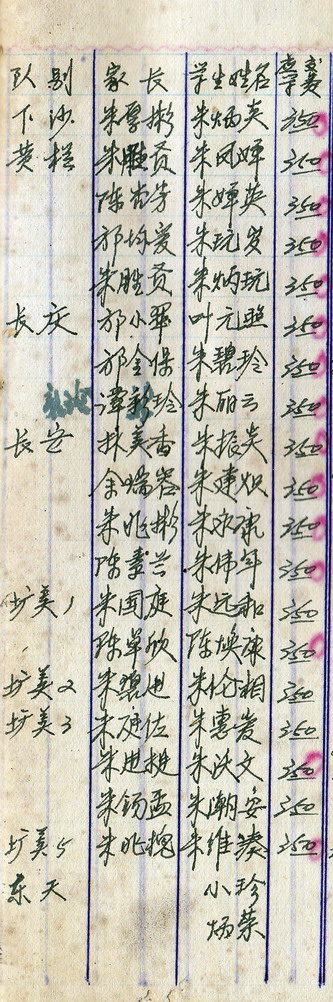 队 别 家 长 学生姓名
下 沙 朱厚彬 朱炳英 350
黄 榄 朱胜贤 朱凤婵 350
陈 芳 朱婵英 350
邝 爱 朱玩 350
朱胜贤 朱炳玩 350
长 庆 邝小翠 叶元照 350
邝金保 朱碧玲 350
谭彩玲 朱丽云 350
长 安 林美香 朱振炎 350
余瑞 朱建炽 350
朱兆彬 朱永康 350
陈素兰 朱伟年 350
圹美1 朱国庭 朱远和 350
陈卓欣 陈焕康 350
圹美2 朱碧 朱伦相 350
圹美3 朱 佐 朱惠爱 350
朱 朱沃文 350
朱锡孟 朱潮安 350
圹美5 朱兆槐 朱维 350
东 天 小珍
炳荣